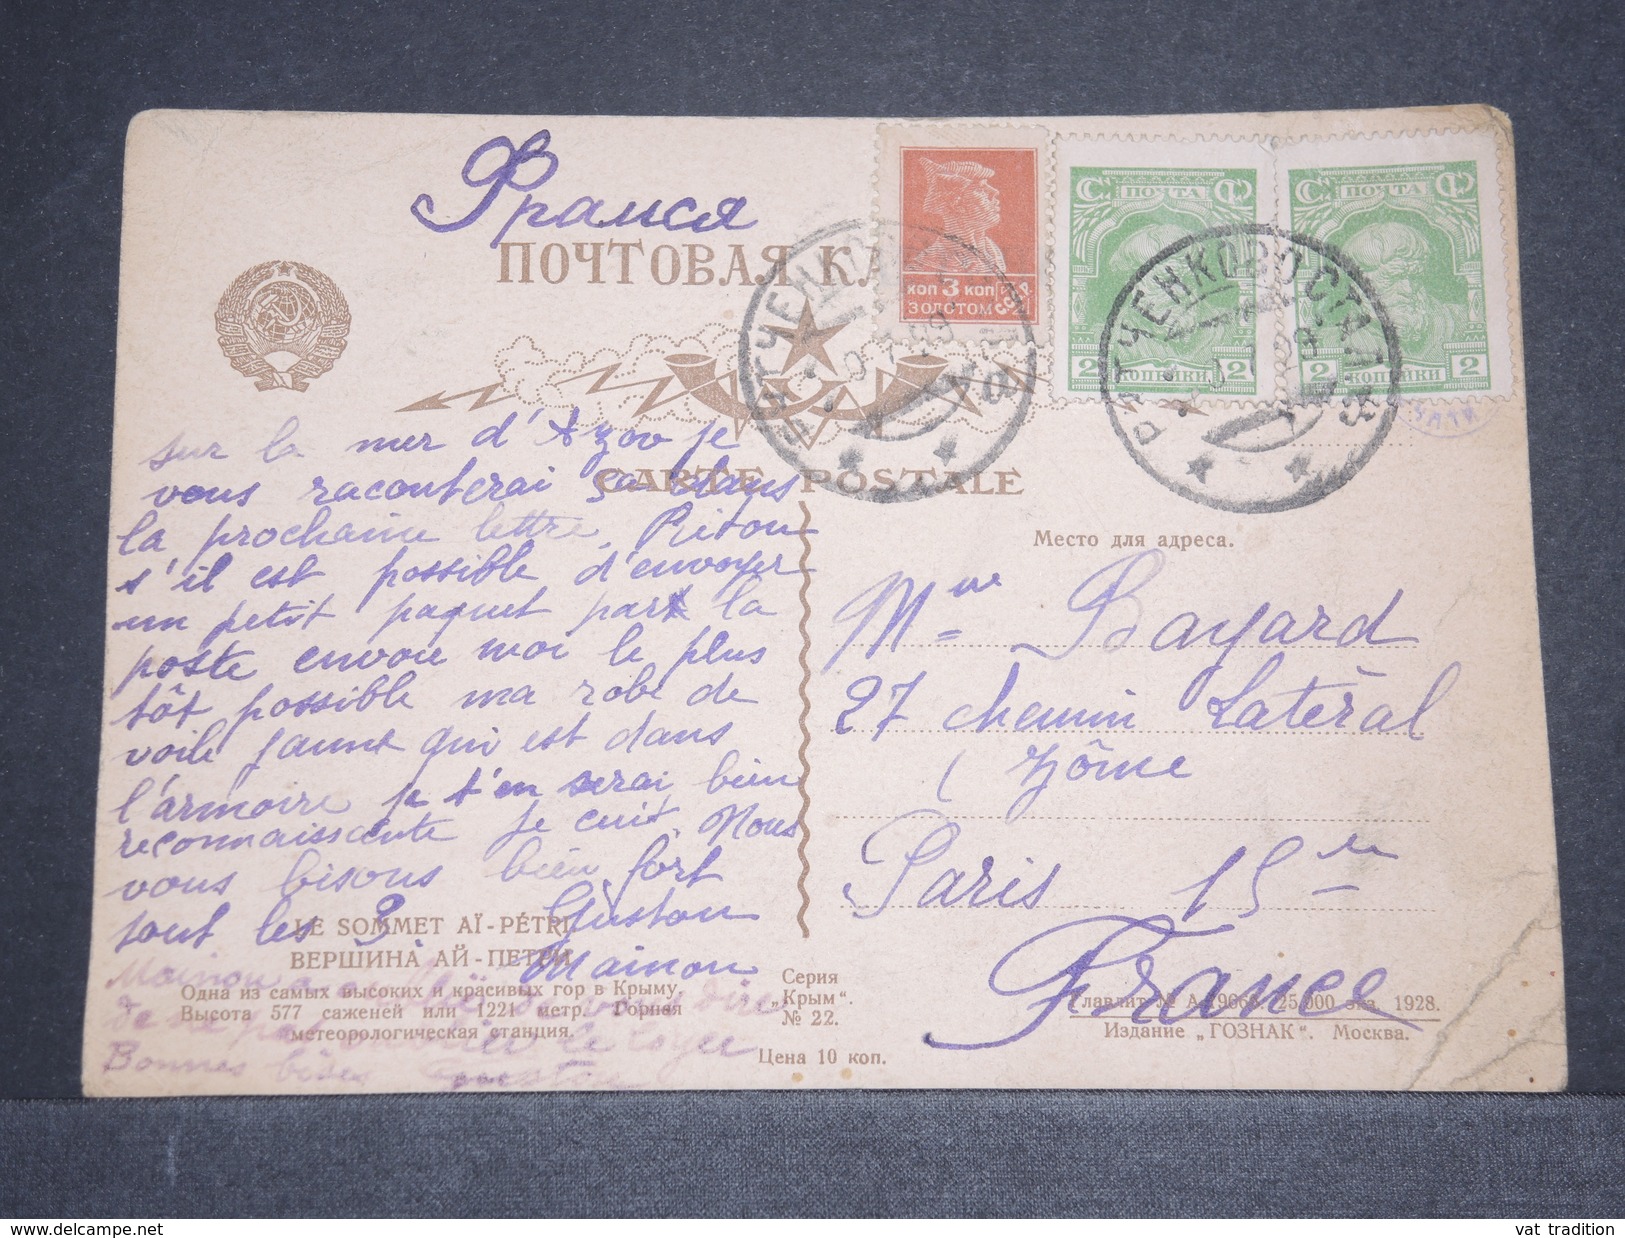 Франся
ПОЧТОВАЯ КА
CARTE POSTALE
С ПОЧТА Ф
2 КОПЕЙКИ 2
С ПОЧТА Ф
2 КОПЕЙКИ 2
КОП 3 КОП
ЗОЛОТОМ
sur la mer d'Azov je
vous raconterai ça dans
la prochaine lettre.
s'il est possible d'envoyer
un petit paquet par la
poste envoie moi le plus
tôt possible ma robe de
voile jaune qui est dans
l'armoire je t'en serai bien
reconnaissante je crois. Nous
vous bisons bien fort
tout les 3. Guston
Mainon
Mainou a de vous dire
de ne pas le loyer
Bonnes bises
Место для адреса.
Mme Bayard
27 chemin Latéral
Paris 15
France
LE SOMMET AÏ-PÉTRI
ВЕРШИНА АЙ-ПЕТРИ
Одна из самых высоких и красивых гор в Крыму.
Высота 577 саженей или 1221 метр. Горная
метеорологическая станция.
Серия
„Крым".
№ 22.
Цена 10 коп.
Главлит № А-19668. 25.000 экз. 1928.
Издание „ГОЗНАК". Москва.
vat tradition
www.delcampe.net